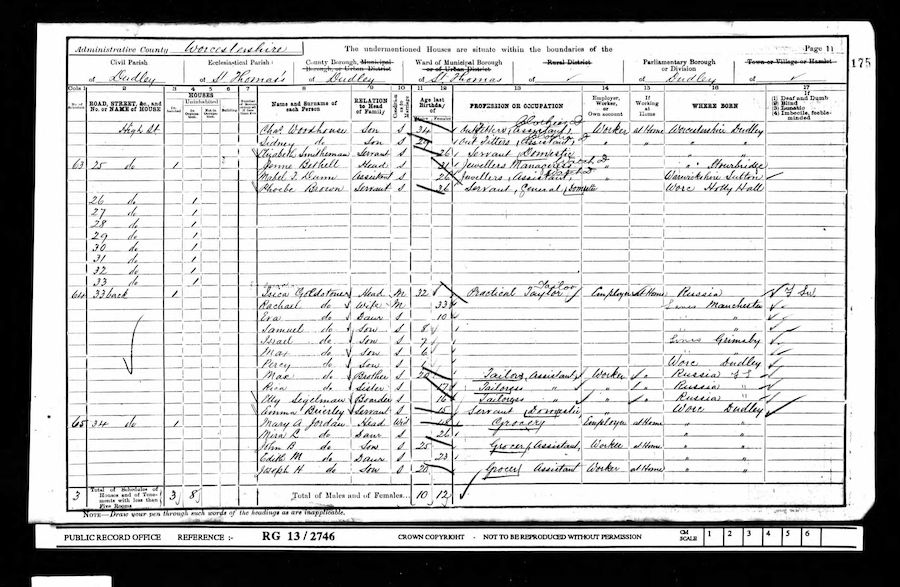 Administrative County Worcestershire The undermentioned Houses are situate within the boundaries of the Page 11
175
Civil Parish Ecclesiastical Parish County Borough, Municipal Borough, or Urban District Ward of Municipal Borough or of Urban District Rural District Parliamentary Borough or Division Town or Village or Hamlet
of Dudley of St Thomas's of Dudley of St Thomas of ✓ of Dudley of ✓
Cols 1 2 3 4 5 6 7 8 9 10 11 12 13 14 15 16 17
ROAD, STREET, &c., and No. or NAME of HOUSE HOUSES Uninhabited Building Name and Surname of each Person RELATION to Head of Family Age last Birthday of PROFESSION OR OCCUPATION Employer, Worker, or Own account If Working at Home WHERE BORN If (1) Deaf and Dumb (2) Blind (3) Lunatic (4) Imbecile, feeble-minded
High St Chas Woodhouse Son S 24 Outfitters, Assistant Worker at Home Worcestershire Dudley
Sidney do Son S Outfitters, Assistant " " " "
Elizabeth Smitheman Servant S 26 Servant Domestic " "
63 25 do 1 Bethell Head S Jewellers " " Stourbridge
Mabel Dunn Assistant S 26 Jewellers, Assistant " Warwickshire Sutton
Phoebe Brown Servant S 26 Servant, General, Domestic Worc Holly Hall
26 do 1
27 do 1
28 do 1
29 do 1
30 do 1
31 do 1
32 do 1
33 do 1
64 33 back 1 Goldstone Head M 32 Practical Taylor Tailor Employer at Home Russia
Rachael do Wife M 33 Manchester
Eva do Daur S 10 " "
Samuel do Son S 8 " "
Israel do Son S 7 Grimsby
Max do Son S 6 " "
Percy do Son S Worc Dudley
Max do Brother S 20 Tailors, Assistant Worker Russia
do Sister S 17 Tailoress " " " Russia "
Segelman Boarder S 16 Tailoress " " " Russia "
Emma Brierley Servant S 15 Servant Domestic Worc Dudley
65 34 do 1 Mary A Jordan Head Wid Grocery Employer at Home " "
do Daur S 26 " "
John B do Son S 25 Grocer, Assistant Worker at Home " "
Edith M do Daur S 23 " "
Joseph H do Son S 20 Grocer Assistant Worker at Home " "
3 Total of Schedules of Houses and of Tenements with less than Five Rooms 3 8 Total of Males and of Females... 10 12
NOTE—Draw your pen through such words of the headings as are inapplicable.
PUBLIC RECORD OFFICE REFERENCE :- RG 13/2746 CROWN COPYRIGHT - NOT TO BE REPRODUCED WITHOUT PERMISSION CM SCALE 1 2 3 4 5 6